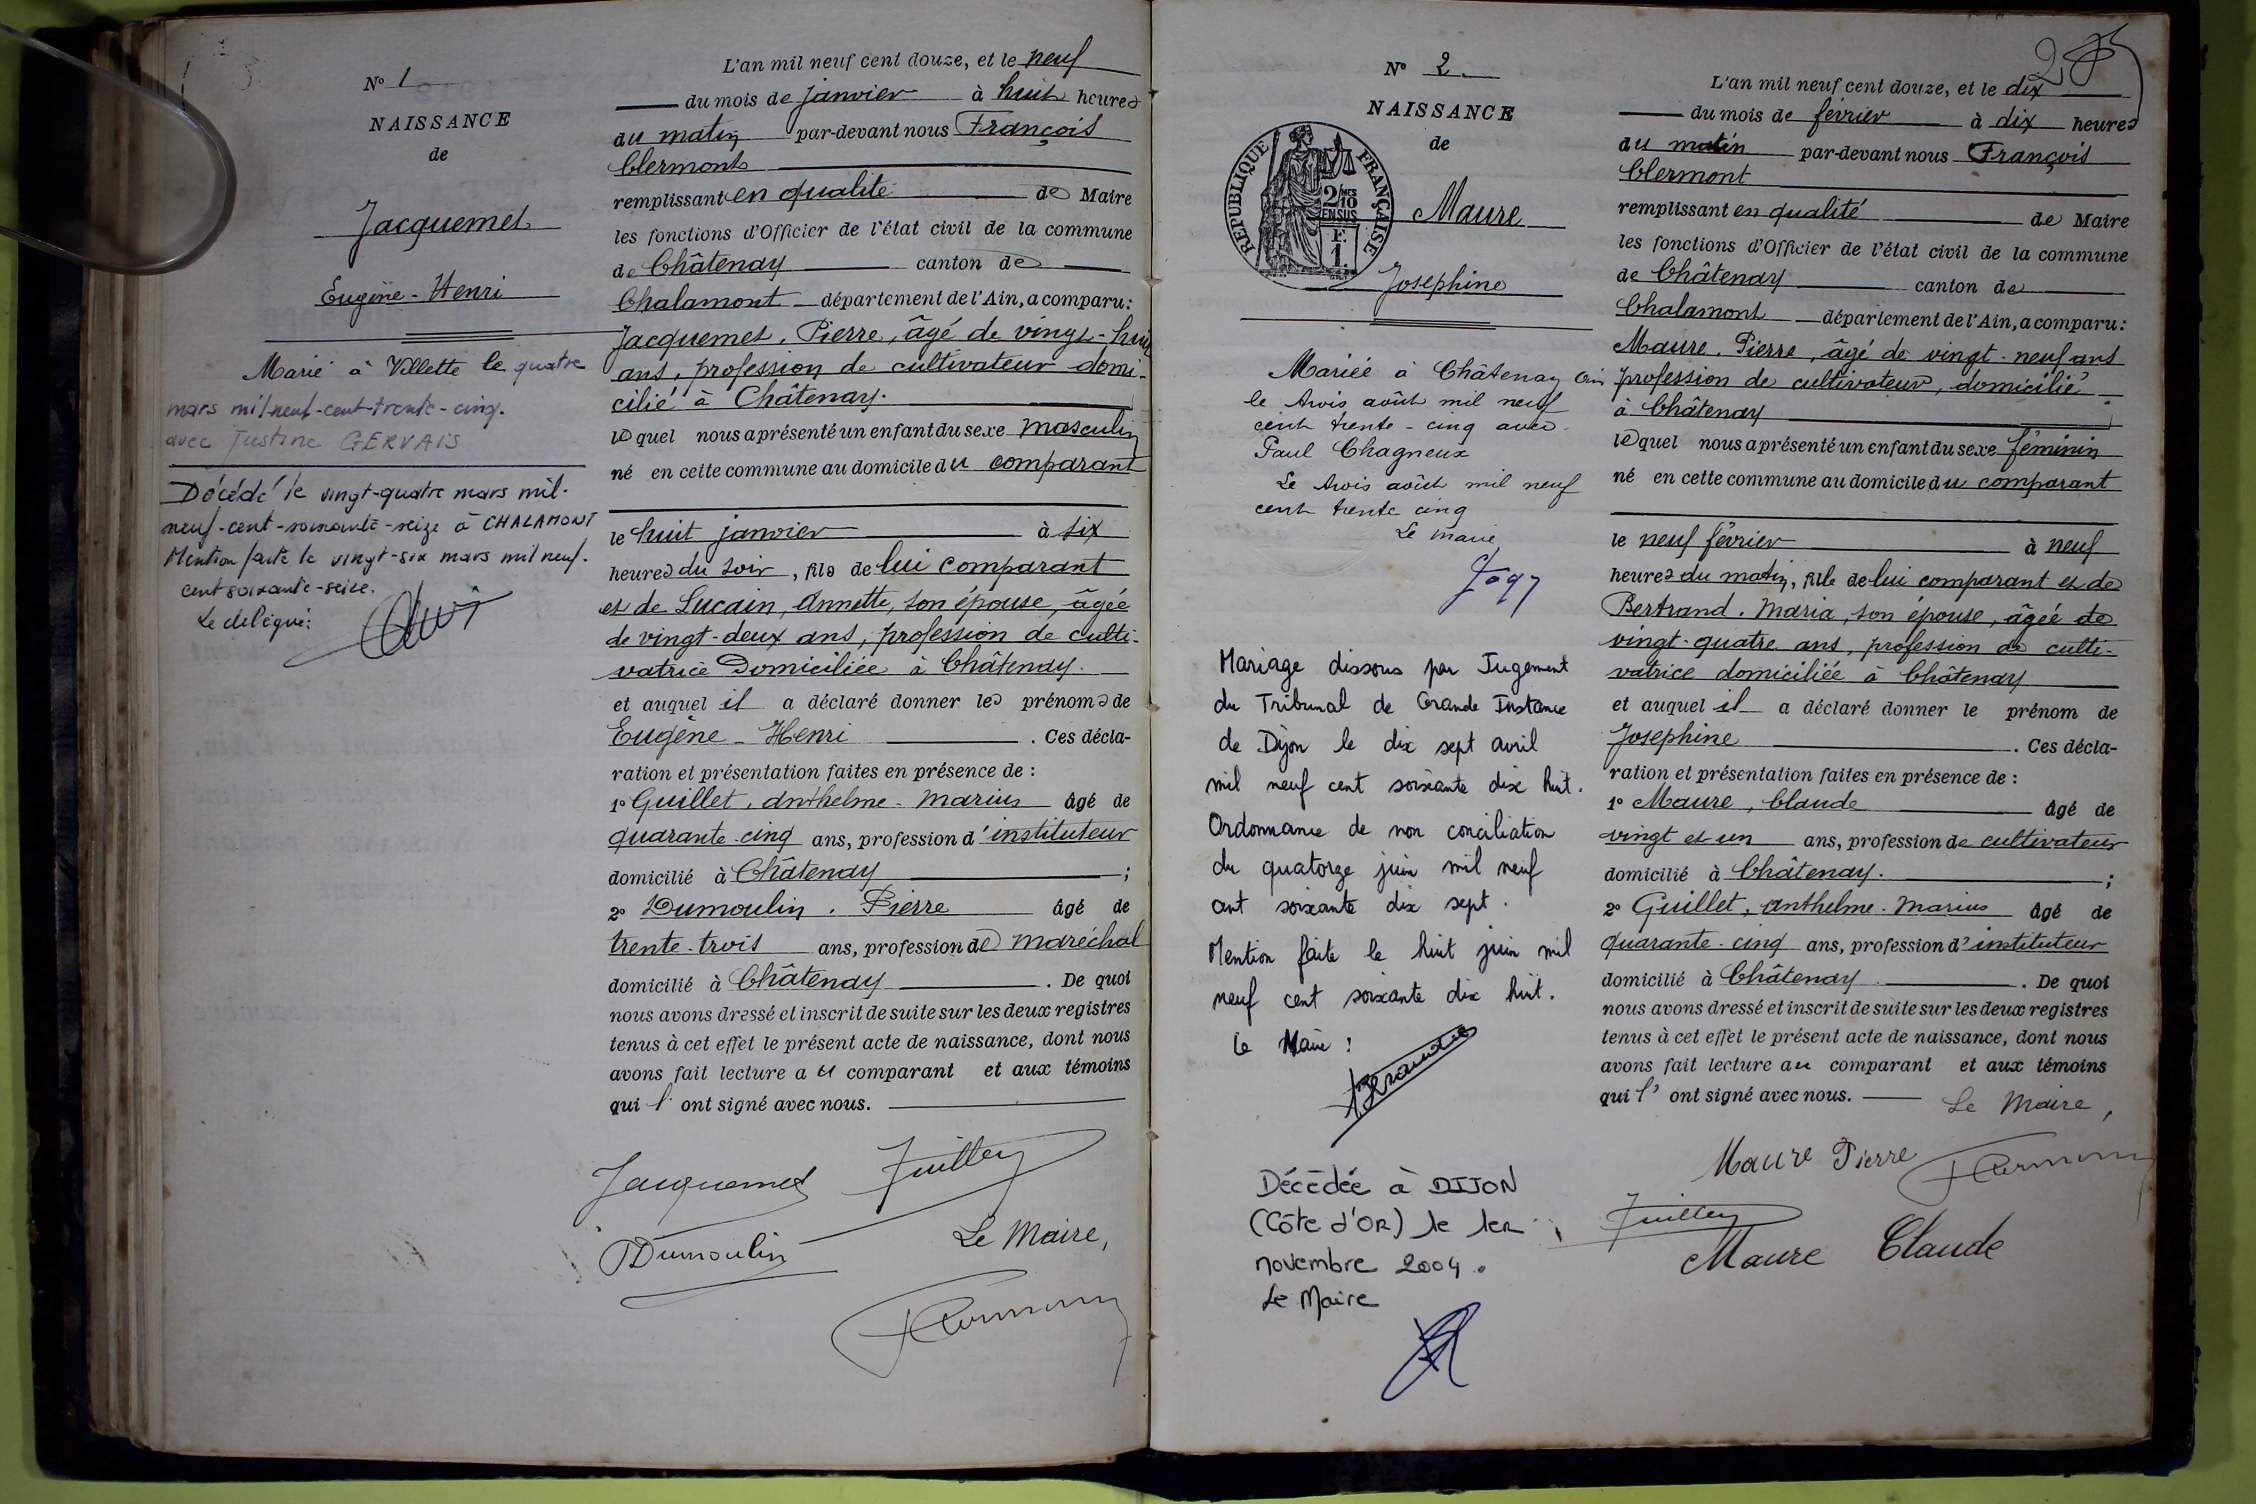 N° 1
NAISSANCE
de
Jacquemet
Eugène-Henri
Marié à Villette le quatre
mars mil-neuf-cent-trente-cinq.
avec Justine GERVAIS
Décédé le vingt-quatre mars mil-
neuf-cent-soixante-seize à CHALAMONT
Mention faite le vingt-six mars mil neuf-
cent soixante-seize.
Le délégué:
L'an mil neuf cent douze, et le neuf
du mois de janvier à huit heures
du matin par-devant nous François
Clermont
remplissant en qualité de Maire
les fonctions d'Officier de l'état civil de la commune
de Châtenay canton de
Chalamont département de l'Ain, a comparu:
Jacquemet, Pierre, âgé de vingt-huit
ans, profession de cultivateur domi-
cilié à Châtenay.
lequel nous a présenté un enfant du sexe masculin
né en cette commune au domicile du comparant
le huit janvier à six
heures du soir, fils de lui comparant
et de Lucain, Annette, son épouse, âgée
de vingt-deux ans, profession de culti-
vatrice Domiciliée à Châtenay.
et auquel il a déclaré donner les prénoms de
Eugène-Henri. Ces décla-
ration et présentation faites en présence de:
1° Guillet, Anthelme-Marius âgé de
quarante-cinq ans, profession d'instituteur
domicilié à Châtenay;
2° Dumoulin. Pierre âgé de
trente-trois ans, profession de Maréchal
domicilié à Châtenay. De quoi
nous avons dressé et inscrit de suite sur les deux registres
tenus à cet effet le présent acte de naissance, dont nous
avons fait lecture au comparant et aux témoins
qui l' ont signé avec nous.
Jacquemet Guillet
Dumoulin Le Maire,
FClermont
N° 2.
NAISSANCE
de
REPUBLIQUE FRANÇAISE
2/10 MES
EN SUS
F.
1.
Maure
Josephine
Mariée à Châtenay Ain
le trois août mil neuf
cent trente-cinq avec
Paul Chagneux
Le trois août mil neuf
cent trente cinq
Le maire
Mariage dissous par Jugement
du Tribunal de Grande Instance
de Dijon le dix sept avril
mil neuf cent soixante dix huit.
Ordonnance de non conciliation
du quatorze juin mil neuf
cent soixante dix sept.
Mention faite le huit juin mil
neuf cent soixante dix huit.
Le Maire:
Décédée à DIJON
(Côte d'OR) le 1er
novembre 2004.
Le Maire
L'an mil neuf cent douze, et le dix
du mois de février à dix heures
du matin par-devant nous François
Clermont
remplissant en qualité de Maire
les fonctions d'Officier de l'état civil de la commune
de Châtenay canton de
Chalamont département de l'Ain, a comparu:
Maure. Pierre, âgé de vingt-neuf ans
profession de cultivateur, domicilié
à Châtenay
lequel nous a présenté un enfant du sexe féminin
né en cette commune au domicile du comparant
le neuf février à neuf
heures du matin, fille de lui comparant et de
Bertrand. Maria, son épouse, âgée de
vingt-quatre ans, profession de culti-
vatrice domiciliée à Châtenay
et auquel il a déclaré donner le prénom de
Josephine. Ces décla-
ration et présentation faites en présence de:
1° Maure, Claude âgé de
vingt et un ans, profession de cultivateur
domicilié à Châtenay.;
2° Guillet, Anthelme-Marius âgé de
quarante-cinq ans, profession d'instituteur
domicilié à Châtenay. De quoi
nous avons dressé et inscrit de suite sur les deux registres
tenus à cet effet le présent acte de naissance, dont nous
avons fait lecture au comparant et aux témoins
qui l' ont signé avec nous. Le Maire,
Maure Pierre FClermont
Guillet
Maure Claude